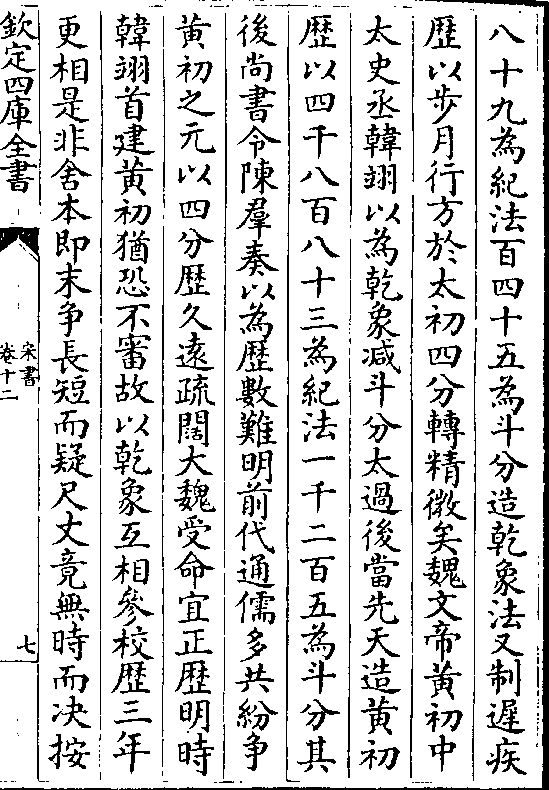 八十九為紀法百四十五為斗分造乾象法又制遲疾
歷以步月行方於太初四分轉精微矣魏文帝黄初中
太史丞韓翊以為乾象减斗分太過後當先天造黄初
歷以四千八百八十三為紀法一千二百五為斗分其
後尚書令陳羣奏以為歷數難明前代通儒多共紛争
黄初之元以四分歷久逺疏闊大魏受命宜正歷明時
韓翊首建黄初猶恐不審故以乾象互相參校歷三年
更相是非舍本即末争長短而疑尺丈竟無時而决按
欽定四庫全書
宋書
卷十二
七